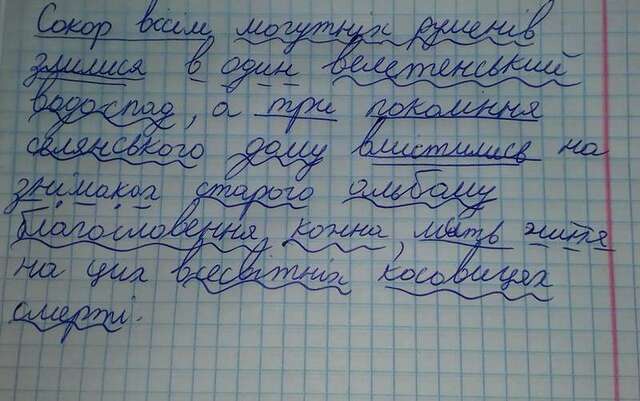 Сокор всім могутних руменів
злилися в один велетенський
водоспад, а три покоління
селянського дому вмістились на
знімаках старого альбому
благословення, кожна, мать життя
на цих всесвітніх косовицях
смерті.